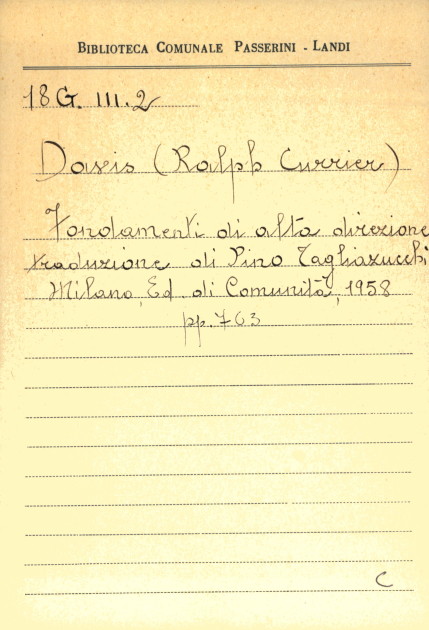 BIBLIOTECA COMUNALE PASSERINI - LANDI
18 G. III. 2
Davis (Ralph Currier)
Fondamenti di alta direzione
traduzione di Pino Tagliazucchi
Milano, Ed. di Comunità, 1958
pp. 763
C